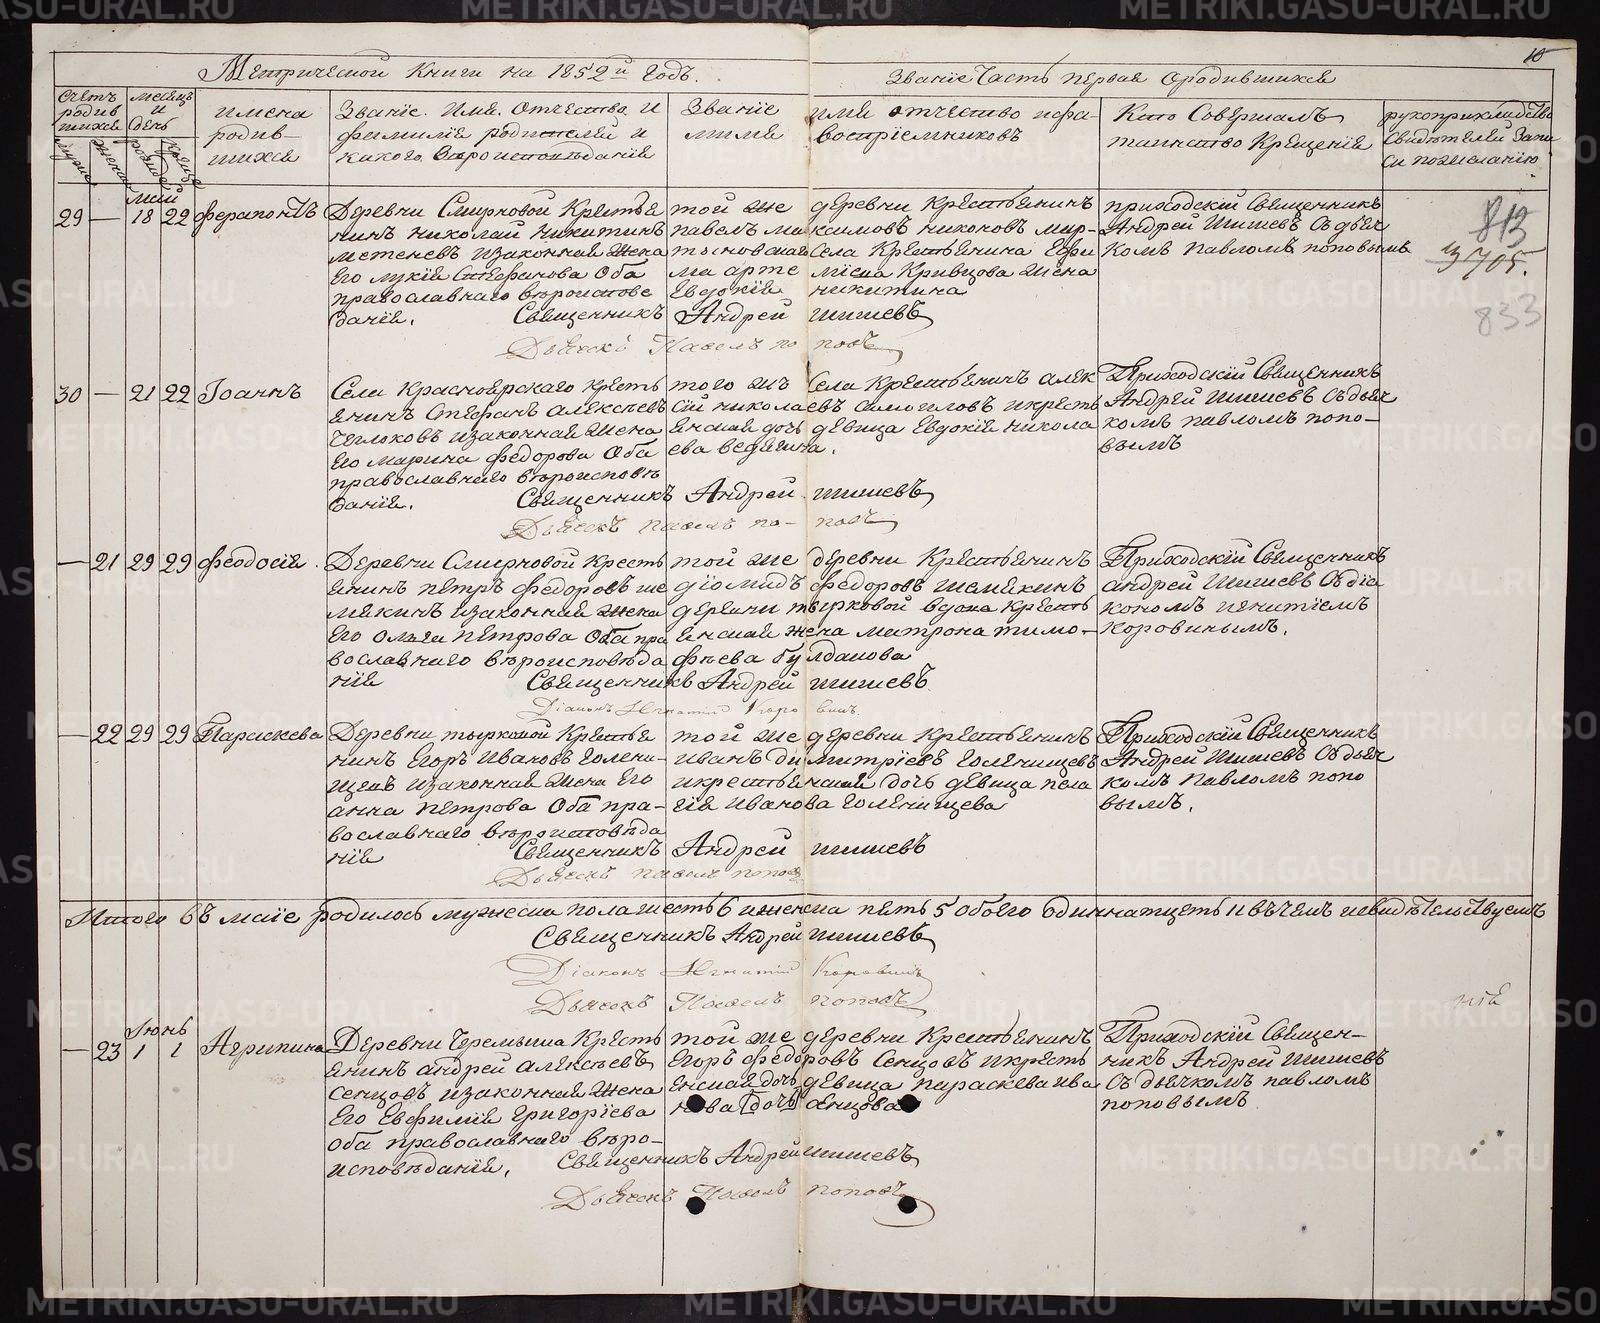 Метрической Книги на 1852й годъ.
Званіе Часть первая Ородившихся
10
Счетъ родившихся
мужеска
женска
месяцъ и день
рожде
креще
имена родившихся
Званіе. Имя. Отчество и фамилія родителей и какого Вѣроисповѣданія
Званіе имя отчество ифа-
воспріемниковъ
Кто Совершалъ
таинство Крещенія
рукоприкладство
Свидѣтелей Запи
си пожеланію
май
29 — 18 22 Ферапонтъ
Деревни Смирновой Крестья
нинъ николай никитинъ
метеневъ изаконная Жена
Его лукія Стефанова Оба
православнаго вѣроиспове
данія.
той же деревни Крестьянинъ
павелъ максимовъ никоновъ мир-
Села Крестьянина Ефи
ма арте міева Кривцова Жена
Евдокія никитина
приходскій Священникъ
Андрей Шишевъ Съ дьяч
комъ павломъ поповымъ
813
3705.
833
Священникъ Андрей шишевъ
Дьячекъ Павелъ поповъ
30 — 21 22 Іоаннъ
Села Красноярскаго Кресть
янинъ Стефанъ алексѣевъ
Чеглоковъ изаконная Жена
Его марина федорова Оба
православнаго вѣроисповѣ
данія.
того жъ Села Крестьянинъ алек
сій николаевъ Самогиловъ икресть
янская дочь дѣвица Евдокія никола
ева ведягина.
Приходскій Священникъ
Андрей Шишевъ Съ дьяч
комъ павломъ попо-
вымъ
Священникъ Андрей шишевъ
Дьячекъ павелъ поповъ
— 21 29 29 Феодосія.
Деревни Смирновой Кресть
янинъ пётръ федоровъ ше
мякинъ изаконная Жена
Его ольга пётрова Оба пра
вославнаго вѣроисповѣда
нія
той же деревни Крестьянинъ
діомидъ федоровъ шемякинъ
деревни тырковой вдова Кресть
янская жена матрона тимо-
фѣева булдакова
Приходскій Священникъ
андрей Шишевъ Съ діа
кономъ игнатіемъ
Коровинымъ.
Священникъ Андрей шишевъ
Діаконъ Игнатій Коровинъ
— 22 29 29 Параскева
Деревни тырковой Крестья
нинъ Егоръ Ивановъ Голени-
щевъ изаконная Жена Его
анна пётрова Оба пра-
вославнаго вѣроисповѣда
нія
той же деревни Крестьянинъ
Иванъ димитріевъ Голенищевъ
икрестьянская дочь дѣвица пела
гія Иванова Голенищева
Приходскій Священникъ
Андрей Шишевъ Съ дьяч
комъ павломъ попо
вымъ.
Священникъ Андрей шишевъ
Дьячекъ павелъ поповъ
Итого въ маіе родилось мужеска пола шесть 6 иженска пять 5 обоего одиннатцеть 11 въ чемъ исвидѣтельствуемъ
Священникъ Андрей шишевъ
Діаконъ Игнатій Коровинъ
Дьячекъ Павелъ поповъ
Іюнь
— 23 1 1 Агрипина
Деревни Черемыша Кресть
янинъ андрей алексѣевъ
Сенцовъ изаконная Жена
Его Евфимія Григоріева
оба православнаго вѣро-
исповѣданія.
той же деревни Крестьянинъ
Егоръ федоровъ Сенцовъ икресть
янская дочь дѣвица параскева ива
нова [дочь] Сенцова
Приходскій Священ-
никъ Андрей Шишевъ
Съ дьячкомъ павломъ
поповымъ
Священникъ Андрей шишевъ
Дьячекъ Павелъ поповъ
METRIKI.GASO-URAL.RU